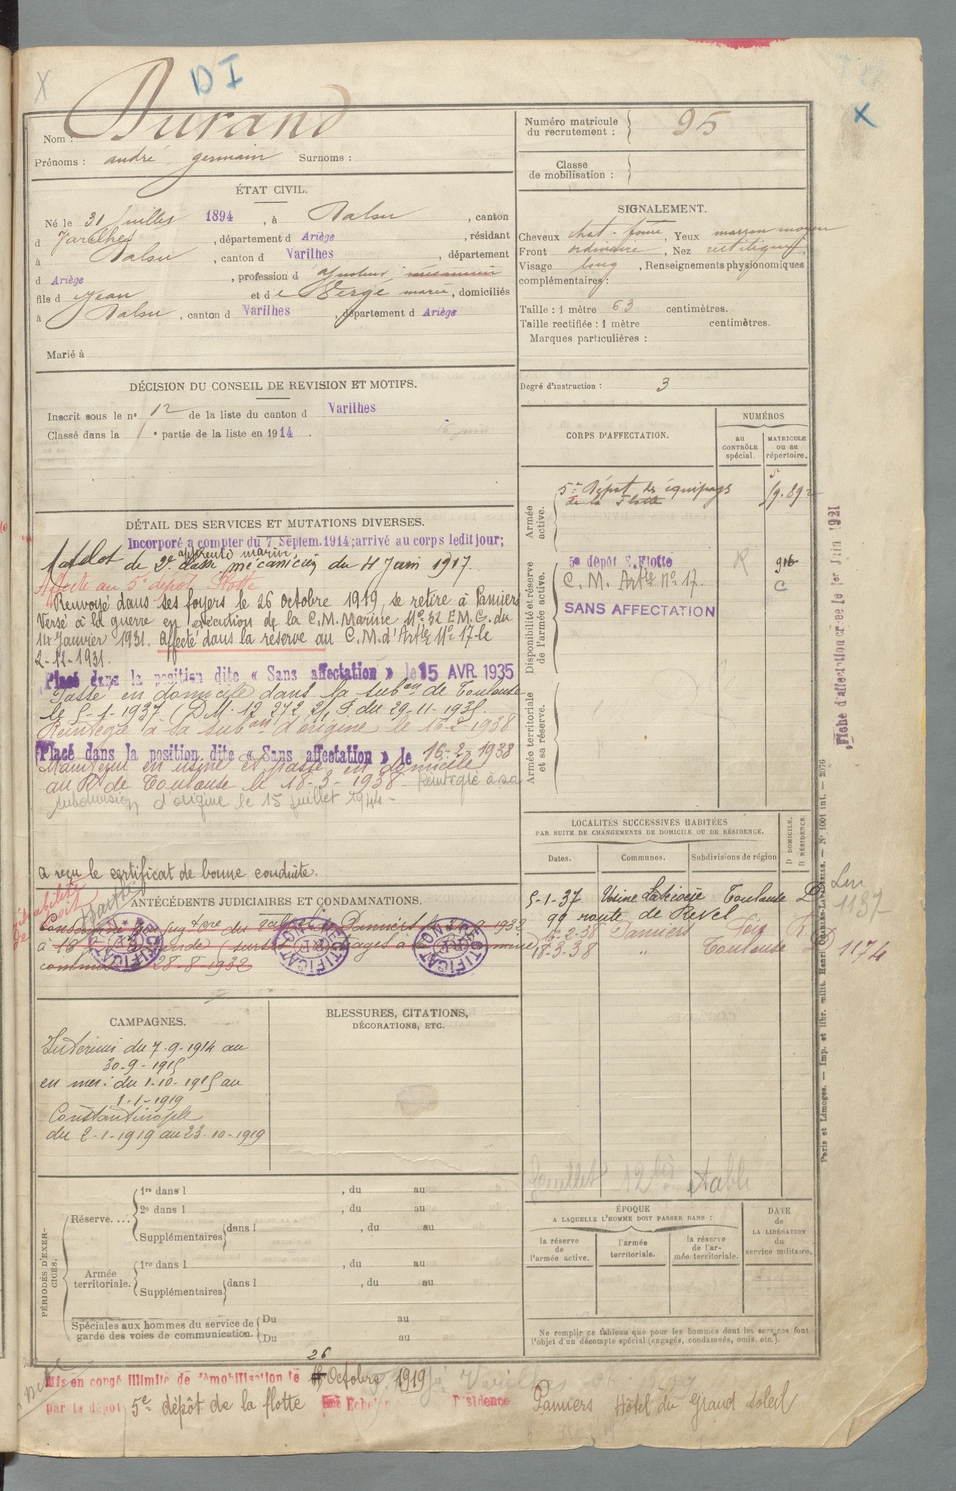 DI
Nom : Durand
Prénoms : andré germain Surnoms :
Numéro matricule du recrutement : 95
Classe de mobilisation :
ÉTAT CIVIL.
Né le 31 juillet 1894, à Dalou, canton
d Varilhes, département d Ariège, résidant
à Dalou, canton d Varilhes, département
d Ariège, profession d
fils d Jean et de Vergé marie, domiciliés
à Dalou, canton d Varilhes, département d Ariège
Marié à
SIGNALEMENT.
Cheveux chat. foncé, Yeux marron moyen
Front ordinaire, Nez rectiligne
Visage long, Renseignements physionomiques
complémentaires :
Taille : 1 mètre 63 centimètres.
Taille rectifiée : 1 mètre centimètres.
Marques particulières :
Degré d'instruction : 3
DÉCISION DU CONSEIL DE REVISION ET MOTIFS.
Inscrit sous le n° 12 de la liste du canton d Varilhes
Classé dans la 1 e partie de la liste en 1914.
CORPS D'AFFECTATION.
NUMÉROS
au CONTRÔLE spécial.
MATRICULE ou au répertoire.
Armée active.
5e Dépôt des équipages
de la Flotte
Disponibilité et réserve de l'armée active.
5e dépôt E. Flotte
C. M. Artie N° 17.
SANS AFFECTATION
Armée territoriale et sa réserve.
DÉTAIL DES SERVICES ET MUTATIONS DIVERSES.
Incorporé a compter du 7 Septem. 1914; arrivé au corps ledit jour;
apprenti marin,
Matelot de 2e classe mécanicien du 4 Juin 1917.
Affecté au 5e dépôt Flotte
Renvoyé dans ses foyers le 26 octobre 1919, se retire à Pamiers
Versé à la guerre en exécution de la C.M. Marine N° 32 E.M.G. du
14 Janvier 1931. Affecté dans la réserve au C.M. d'Artie N° 17 le
2-12-1931.
Placé dans la position dite « Sans affectation » le 15 AVR 1935
Passé en domicile dans la subon de Toulouse
le 5-1-1937 (D.M. 12 272 2/1 F du 29-11-1935
Réintégré à sa subon d'origine le 16-2-1938
Placé dans la position dite « Sans affectation » le 16-2-1938
Manoeuvre en usine et passé en domicile
au R. de Toulouse le 18-3-1938 - Réintégré à sa
subdivision d'origine le 15 juillet 1944 -
a reçu le certificat de bonne conduite.
ANTÉCÉDENTS JUDICIAIRES ET CONDAMNATIONS.
28-8-1932
LOCALITÉS SUCCESSIVES HABITÉES
PAR SUITE DE CHANGEMENTS DE DOMICILE OU DE RÉSIDENCE.
Dates. Communes. Subdivisions de région D DOMICILE. R RÉSIDENCE.
5-1-37 Usine Toulouse D
99 route de Revel
16-2-38 Pamiers Foix R
18-3-38 " Toulouse D
1137
1174
CAMPAGNES.
Intérieur du 7-9-1914 au
30-9-1915
en mer : du 1-10-1915 au
1-1-1919
Constantinople
du 2-1-1919 au 23-10-1919
BLESSURES, CITATIONS,
DÉCORATIONS, ETC.
Feuillet 12 bis établi
PÉRIODES D'EXERCICES.
Réserve....
1re dans l , du au
2e dans l , du au
Supplémentaires dans l , du au
Armée territoriale.
1re dans l , du au
Supplémentaires dans l , du au
Spéciales aux hommes du service de garde des voies de communication.
Du au
Du au
ÉPOQUE
A LAQUELLE L'HOMME DOIT PASSER DANS :
la réserve de l'armée active.
l'armée territoriale.
la réserve de l'armée territoriale.
DATE de LA LIBÉRATION du service militaire.
Ne remplir ce tableau que pour les hommes dont les services font
l'objet d'un décompte spécial (engagés, condamnés, omis, etc.).
Mis en congé illimité de démobilisation le 26 Octobre 1919
par le dépôt 5e dépôt de la flotte Echelon Résidence Pamiers Hôtel du Grand Soleil
Fiche d'affectation créée le 1er Juin 1921